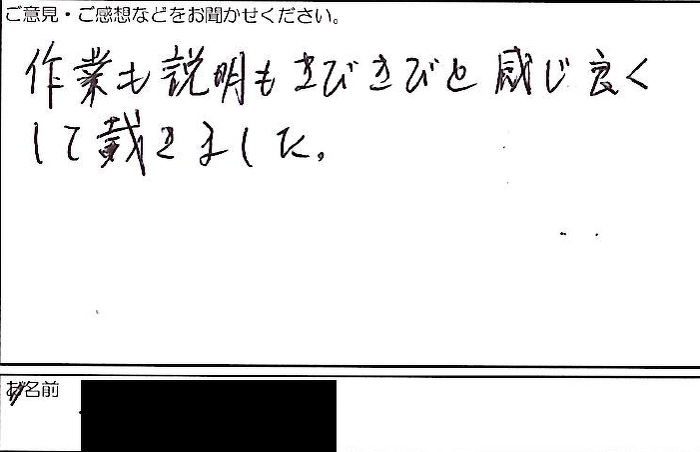 ご意見・ご感想などをお聞かせください。
作業も説明もきびきびと感じ良く
して戴きました。
お名前